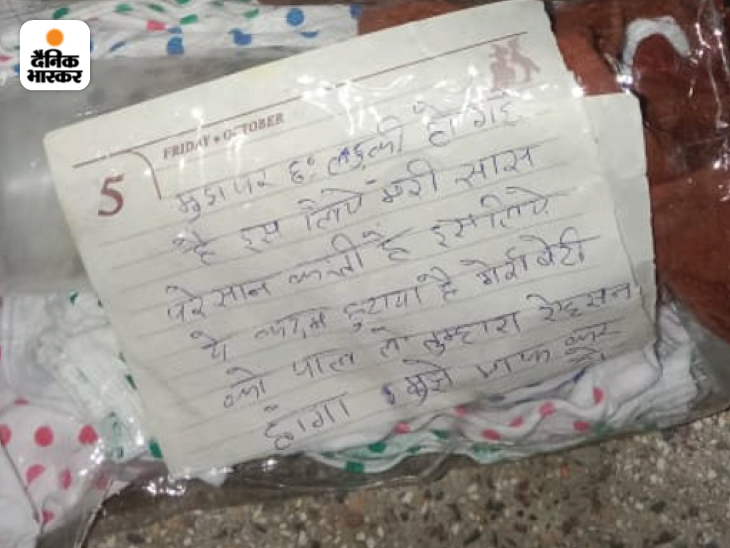 दैनिक
भास्कर
FRIDAY • OCTOBER
5
मुझ पर छः लड़की हो गई
है इस लिये मेरी सास
परेसान करती है इसलिये
ये कदम उठाया है मेरी बेटी
को पाल लो तुम्हारा ऐहसान
होगा मुझे माफ कर
दो